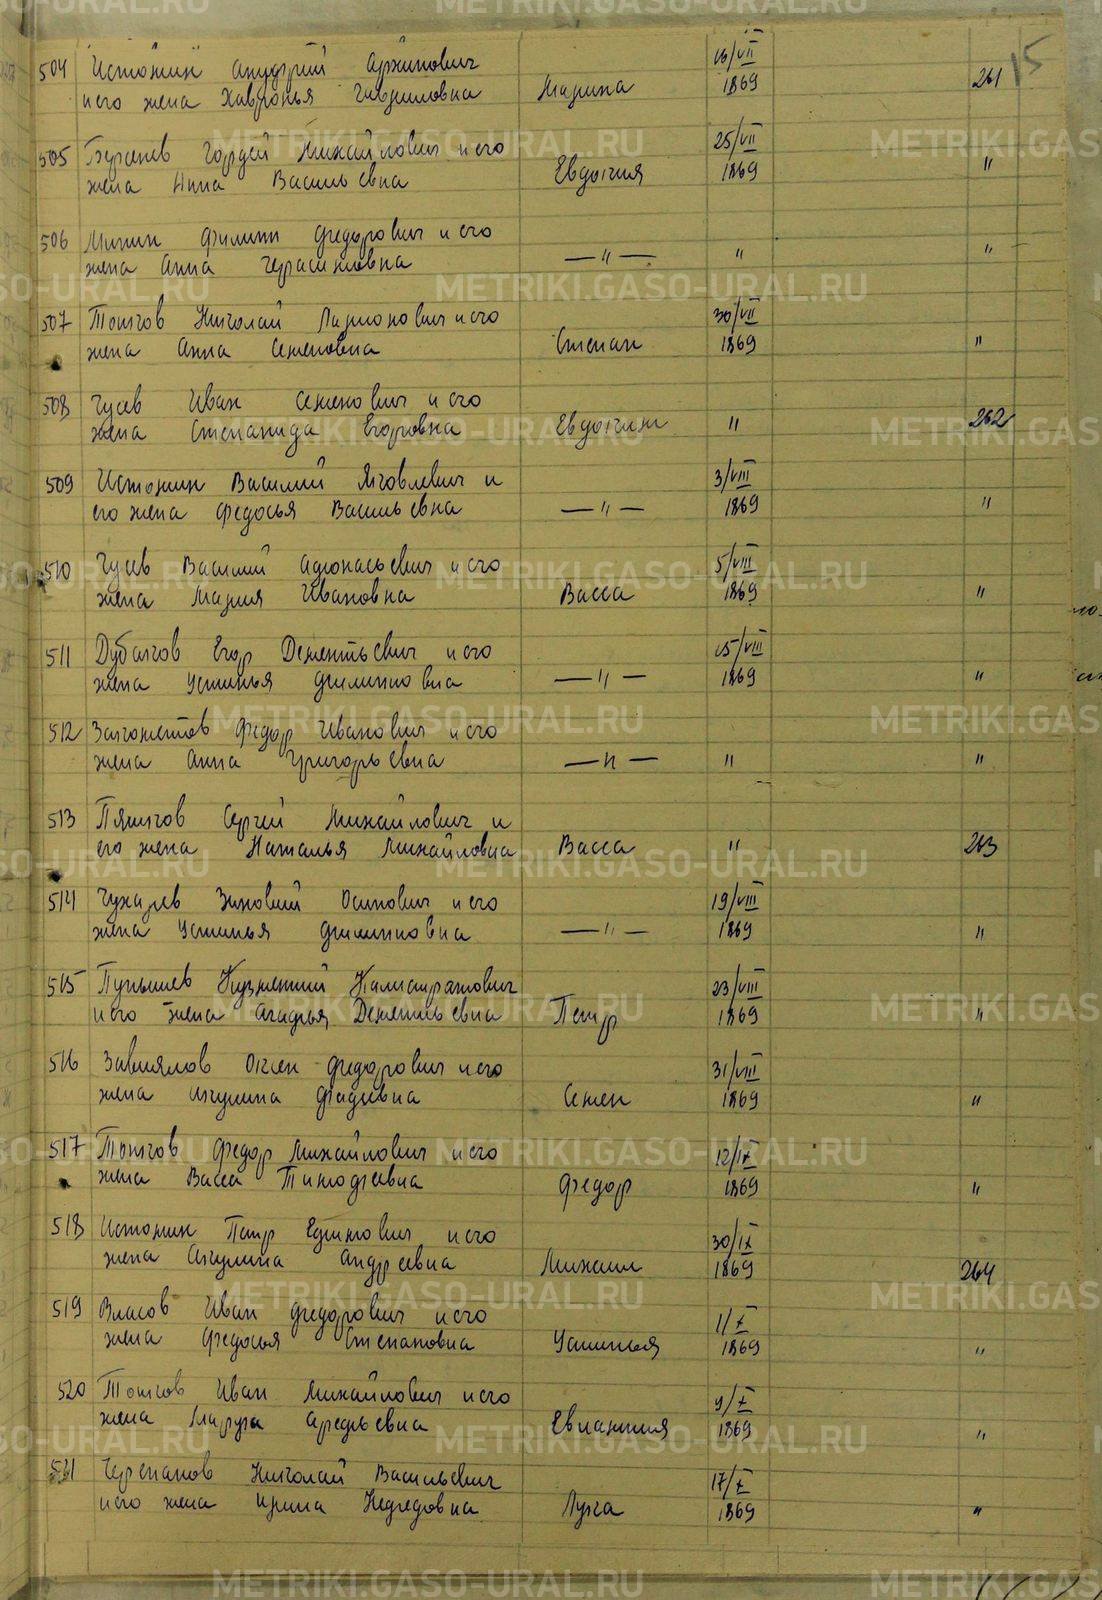 15
504 Истомин Ануфрий Архипович 16/VII
и его жена Хавронья Гавриловна Марина 1869 261
505 Буранев Гордей Михайлович и его 25/VII
жена Анна Васильевна Евдокия 1869 "
506 Минин Филипп Федорович и его
жена Анна Герасимовна —"— " "
507 Токов Николай Ларионович и его 30/VII
жена Анна Семеновна Степан 1869 "
508 Гусев Иван Семенович и его
жена Степанида Егоровна Евдоким " 262
509 Истомин Василий Яковлевич и 3/VIII
его жена Федосья Васильевна —"— 1869 "
510 Гусев Василий Афонасьевич и его 5/VIII
жена Мария Ивановна Васса 1869 "
511 Егор Дементьевич и его 15/VIII
жена Устинья Филипповна —"— 1869 "
512 Федор Иванович и его
жена Анна Григорьевна —"— " "
513 Пятков Сергей Михайлович и
его жена Наталья Михайловна Васса " 263
514 Чухарев Зиновий Осипович и его 19/VIII
жена Устинья Филипповна —"— 1869 "
515 Пупышев Калистратович 23/VIII
и его жена Агафья Дементьевна Петр 1869 "
516 Завиялов Федорович и его 31/VIII
жена Акулина Фадеевна Семен 1869 "
517 Токов Федор Михайлович и его 12/IX
жена Васса Тимофеевна Федор 1869 "
518 Истомин Петр Ефимович и его 30/IX
жена Акулина Андреевна Михаил 1869 264
519 Власов Иван Федорович и его 1/X
жена Федосья Степановна Устинья 1869 "
520 Токов Иван Михайлович и его 9/X
жена Марфа Арефьевна Евлампия 1869 "
521 Черепанов Николай Васильевич 17/X
и его жена Ирина Нефедовна Лука 1869 "
METRIKI.GASO-URAL.RU